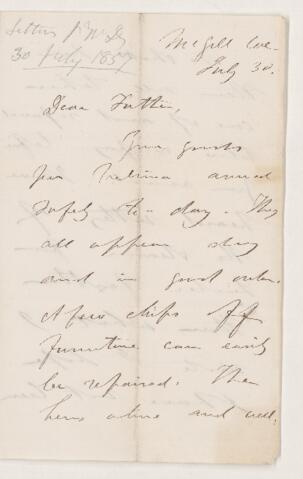 30 July 1857
McGill Col.
July 30.
Dear Father,
Your goods
per Bellona arrived
safely to day. They
all appear dry
and in good order.
A few chips off
furniture can easily
be repaired. The
hens alive and well.